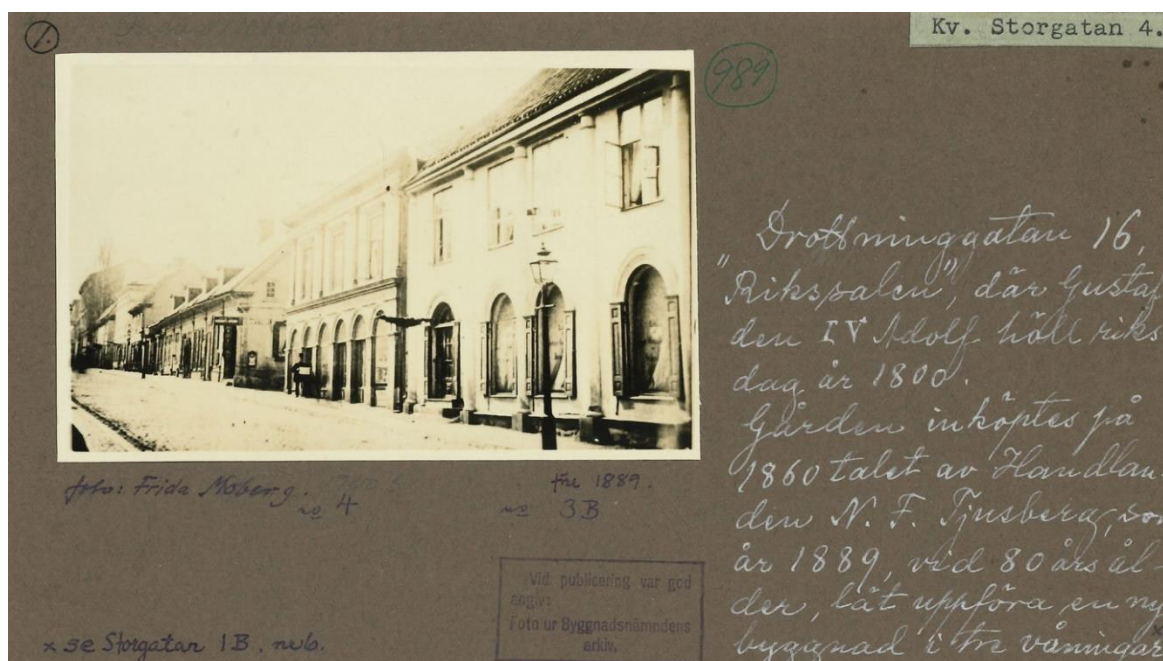 1.
Kv. Storgatan 4.
989
Drottninggatan 16,
"Rikssalen", där Gustaf
den IV Adolf höll riks
dag år 1800.
Gården inköptes på
1860 talet av Handlan-
den N. F. Tjusberg, som
år 1889, vid 80 års ål-
der, lät uppföra en ny
byggnad i tre våningar
foto: Frida Moberg.
Fre 1889.
no 4
no 3B
Vid publicering var god
angiv:
Foto ur Byggnadsnämndens
arkiv.
x se Storgatan 1B. ne 6.